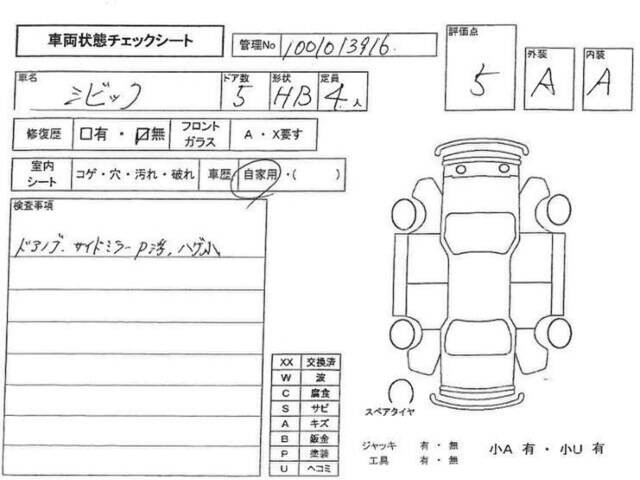 車両状態チェックシート
管理No 1001013916
評価点 5
外装 A
内装 A
車名 シビック
ドア数 5
形状 HB
定員 4人
修復歴 □有・☑無
フロントガラス A・X要す
室内シート コゲ・穴・汚れ・破れ
車歴 自家用・( )
検査事項
ドアノブ、サイドミラー P浮、ハゲ小
XX 交換済
W 波
C 腐食
S サビ
A キズ
B 鈑金
P 塗装
U ヘコミ
スペアタイヤ
ジャッキ 有・無
工具 有・無
小A 有・小U 有